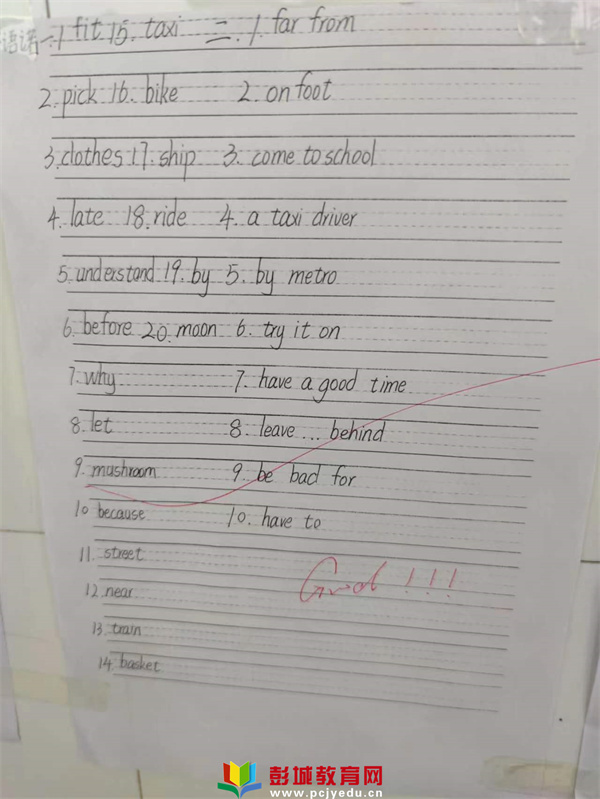 语 一.1 fit 15. taxi 二. 1. far from
2. pick 16. bike 2. on foot
3. clothes 17. ship 3. come to school
4. late 18. ride 4. a taxi driver
5. understand 19. by 5. by metro
6. before 20. moon 6. try it on
7. why 7. have a good time
8. let 8. leave... behind
9. mushroom 9. be bad for
10 because 10. have to
11. street
Good!!!
12. near
13. train
14. basket
彭城教育网
www.pcjyedu.cn